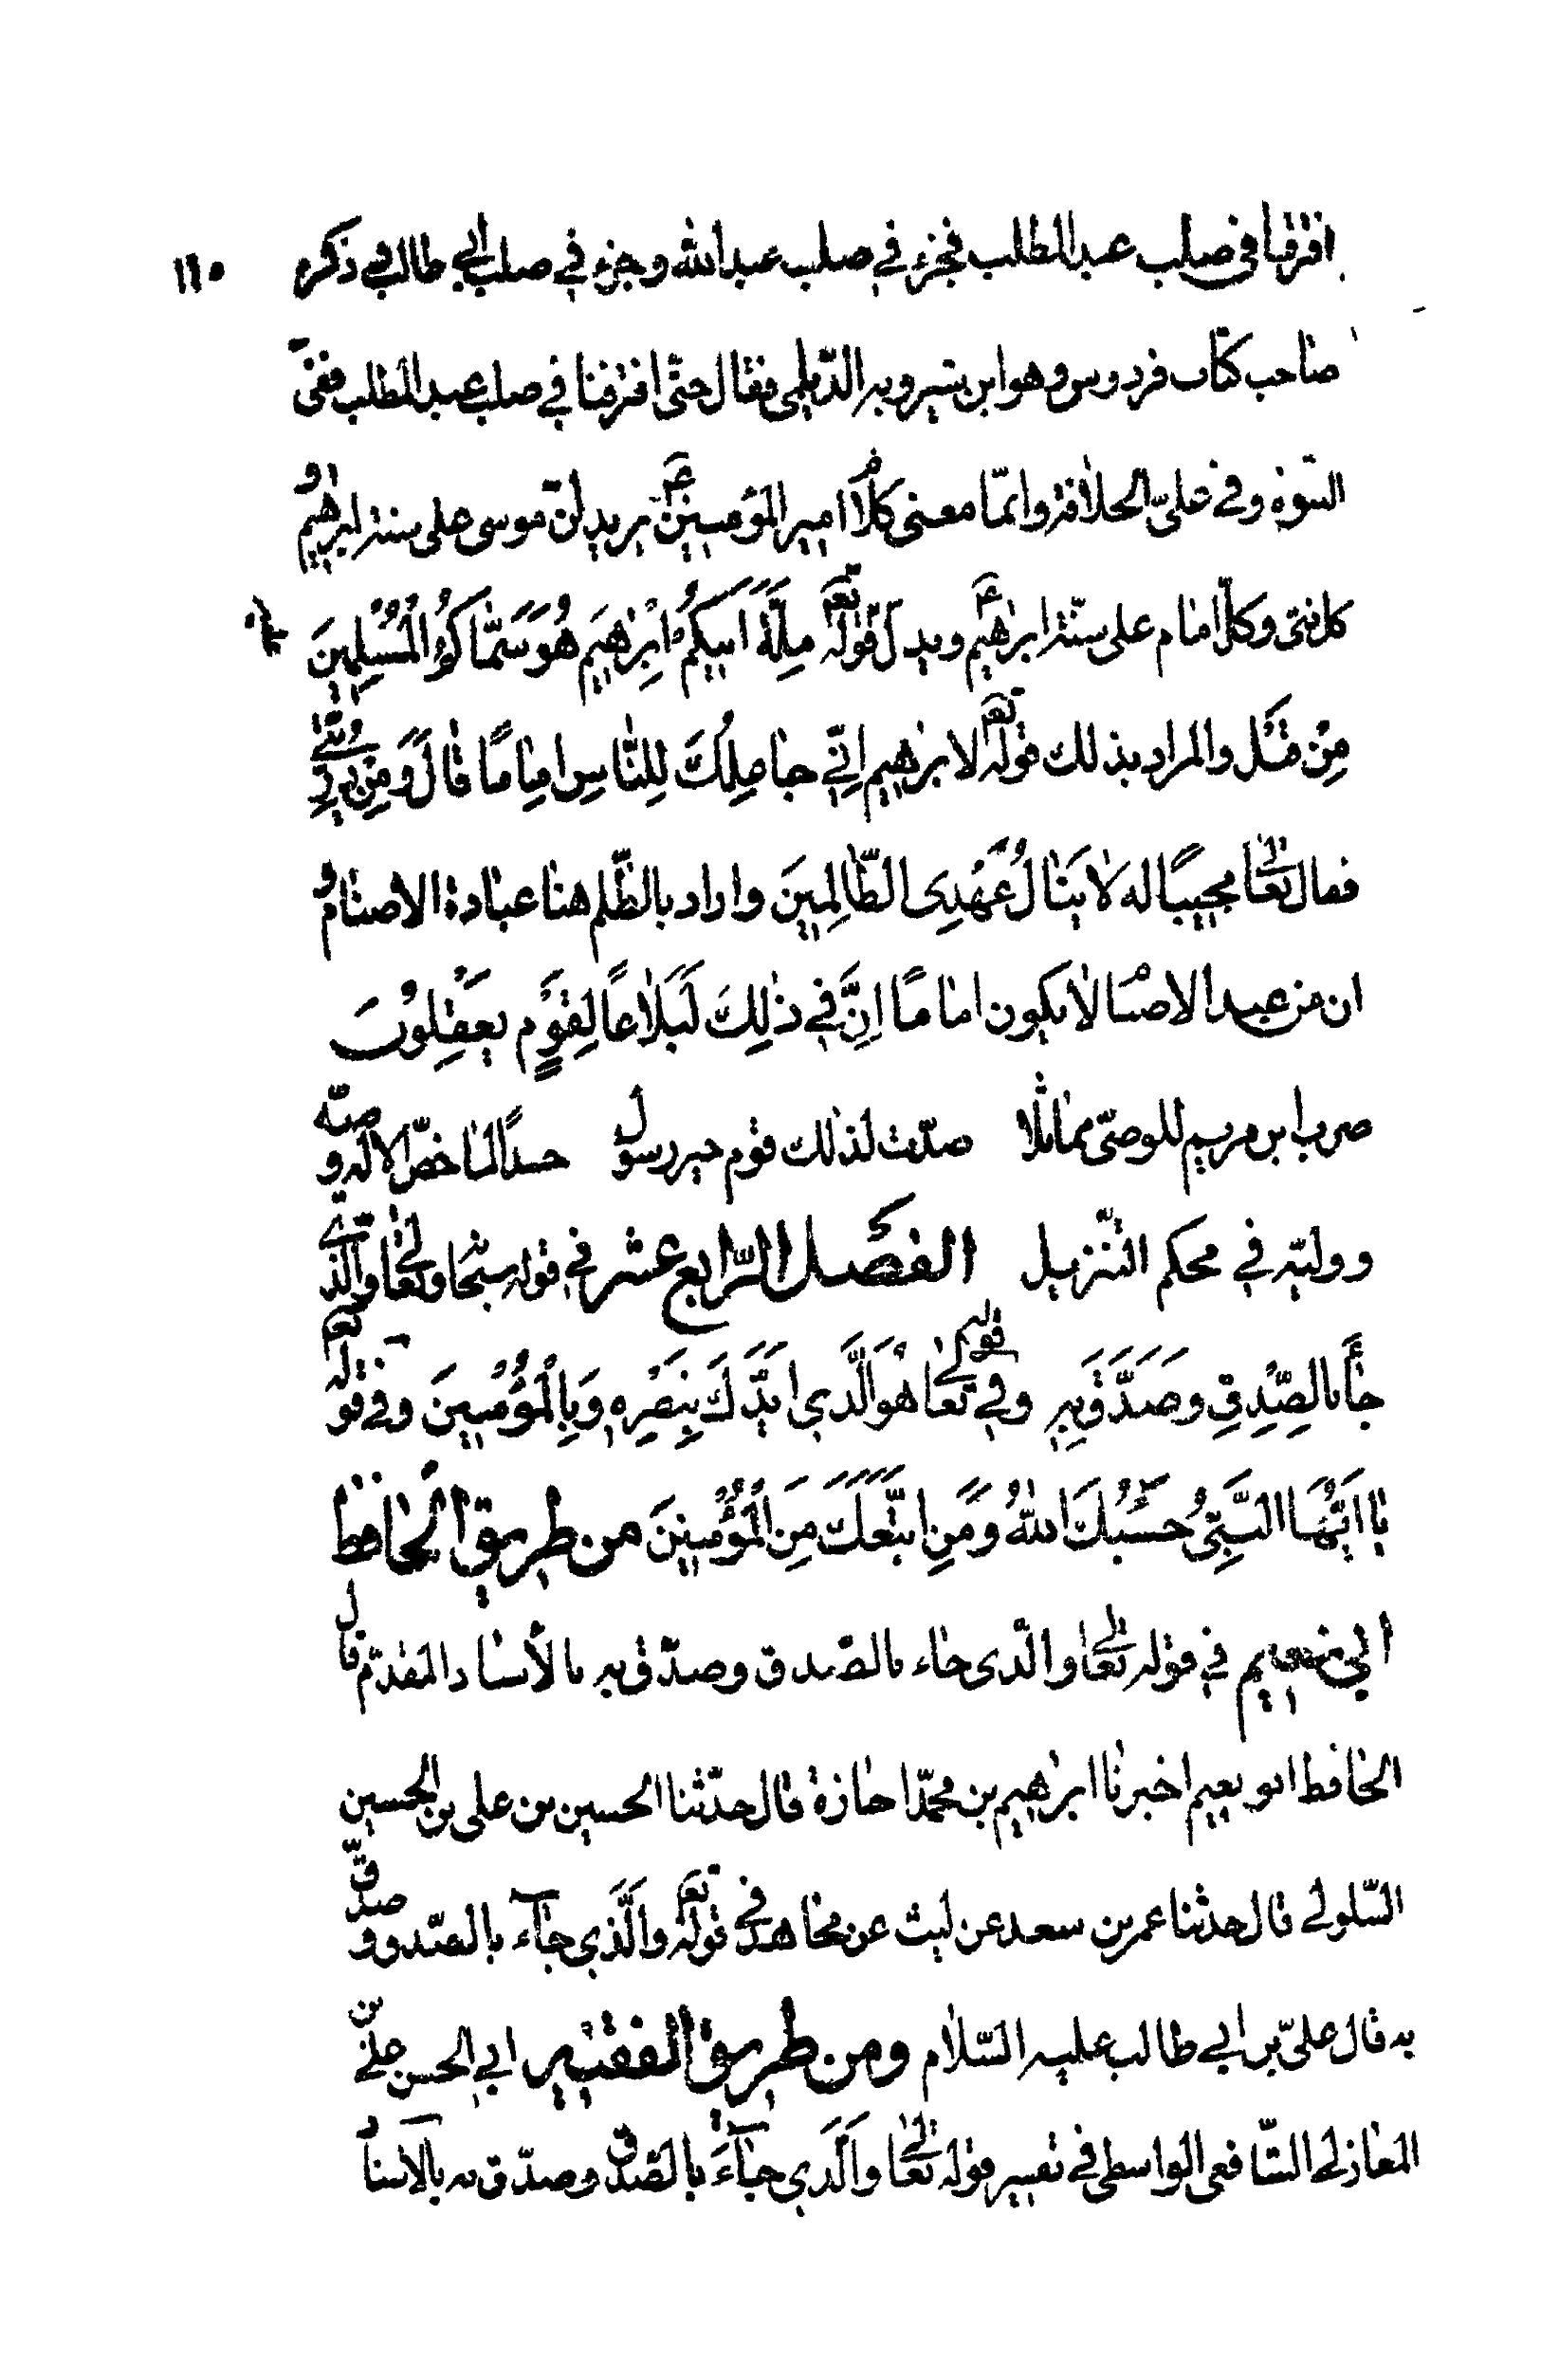 افترقا في صلب عبد المطلب فجزء في صلب عبد الله وجزء في صلب ابي طالب في ذكره ١١٥
صاحب كتاب فردوس وهو ابن شيرويه الديلمي فقال حتى افترقنا في صلب عبد المطلب ففيّ
النبوة وفي عليّ الخلافة وانّما معنى كلام امير المؤمنين ع يريد انّ موسى على سنة ابرهيم و
كل نبى وكلّ امام على سنّة ابرهيم ع ويدل قوله تع مِلَّةَ اَبيكُمْ اِبْرٰهيَم هُوَ سَمّٰاكُمُ الْمُسْلِمِينَ
مِنْ قَبْل والمراد بذلك قوله تع لابرهيم اِنّي جٰاعِلُكَ لِلنّٰاسِ اِمٰامًا قٰالَ وَمِنْ ذُرِّيَّتي
فقال تعالى مجيبًا له لاٰ يَنٰالُ عَهْدِى الظّٰالِمِينَ واراد بالظّلم هنا عبادة الاصنام و
ان من عبد الاصنام لا يكون اماما اِنَّ في ذٰلِكَ لَبَلاٰغًا لِقَوْمٍ يَعْقِلُونَ
ضرب ابن مريم للوصىّ مماثلا صدّت لذلك قوم خير رسول حسدًا لما خصّ الاله وصيّه
ووليّه في محكم التّنزيل الفصل الرّابع عشر في قوله سبحانه وتعالى والّذي
جٰاءَ بالصِّدْقِ وصَدَّقَ بِهِ وفي قوله تعالى هُوَ الَّذي اَيَّدَكَ بِنَصْرِهِ وَبِالْمُؤْمِنينَ وفي قوله تع
يٰا اَيُّهَا النَّبِيُّ حَسْبُكَ اللهُ وَمَنِ اتَّبَعَكَ مِنَ الْمُؤْمِنينَ من طريق الحافظ
ابي نعيم في قوله تعالى والّذى جاء بالصّدق وصدّق به بالأسناد المقدّم قال
الحافظ ابو نعيم اخبرنا ابرهيم بن محمّد اجازة قال حدّثنا الحسين بن على بن الحسين
السّلولي قال حدثنا عمر بن سعد عن ليث عن مجاهد في قوله تع والَّذي جٰآء بالصّدق وصدّق
به قال علىّ بن ابي طالب عليه السّلام ومن طريق الفقيه ابي الحسن عليّ بن
المغازلي الشّافعى الواسطى في تفسير قوله تعالى واَلَّذي جٰآءَ بالصّدق وصدّق به بالاسناد